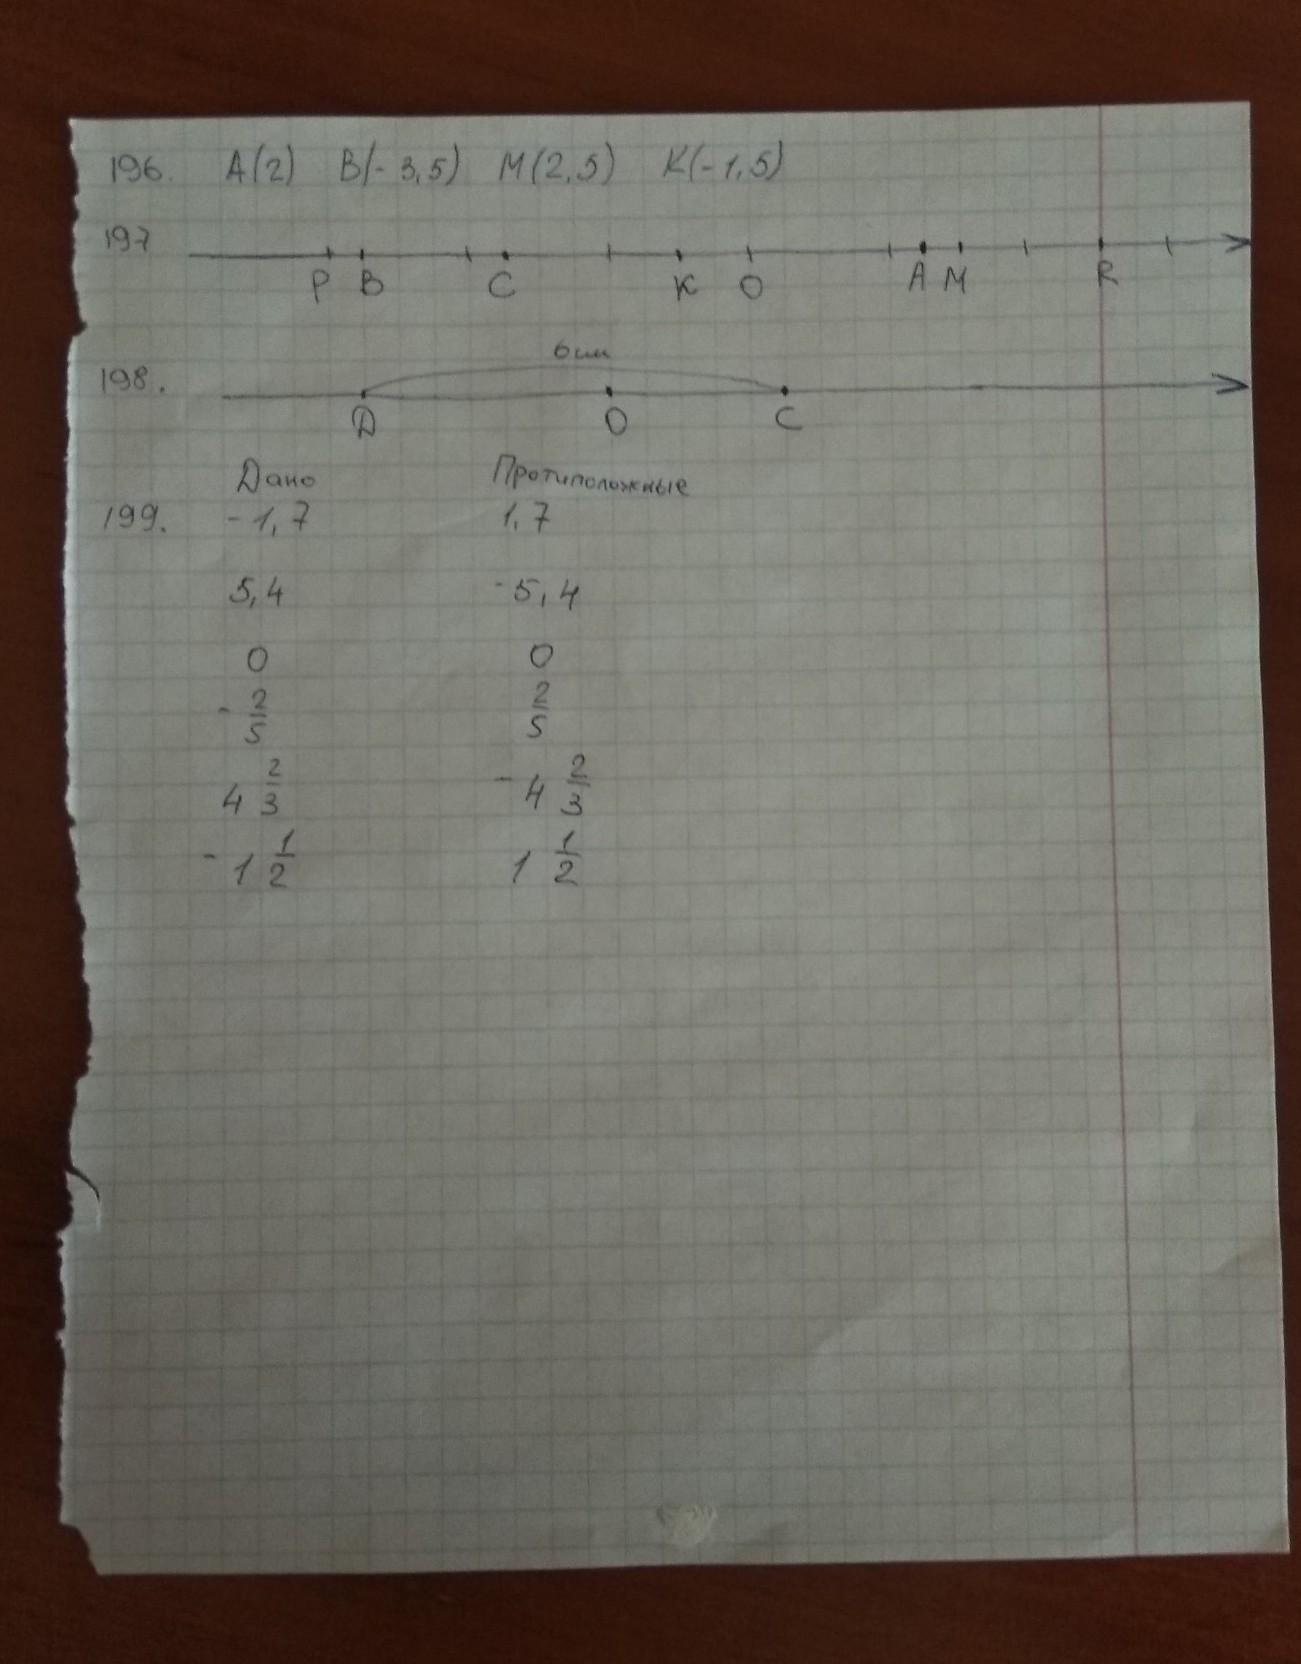 196. A(2) B(-3,5) M(2,5) K(-1,5)
197
P B C K O A M R
6 см
198.
D O C
Дано Протиположные
199. -1,7 1,7
5,4 -5,4
0 0
-2/5 2/5
4 2/3 -4 2/3
-1 1/2 1 1/2